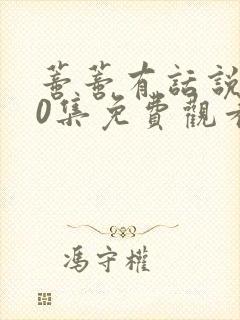 蔷蔷有話說
0集免費觀看
馮守權